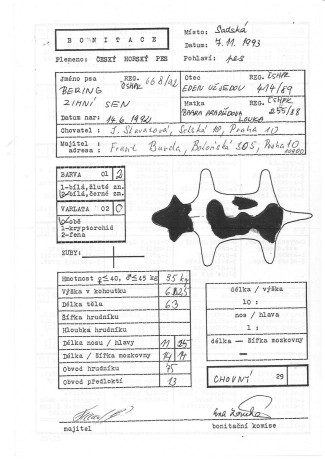 BONITACE
Místo: Sadská
Datum: 7.11.1993
Plemeno: ČESKÝ HORSKÝ PES
Pohlaví: pes
Jméno psa REG. ČSHPK 668/92
BERING
ZIMNÍ SEN
Datum nar: 14.6.1992
Otec REG. ČSHPK
EDEN 414/89
Matka REG. ČSHPK
255/88
BARA LOUKA
Chovatel: J. Praha 10
Majitel
adresa: Frant. Burda, Boloňská 305, Praha 10
BARVA 01 2
1-bílá, žluté zn.
2-bílá, černé zn.
VARLATA 02 0
0-obě
1-kryptorchid
2-fena
ZUBY:
Hmotnost ♀≤40, ♂≤45 kg 35kg
Výška v kohoutku
Délka těla 63
Šířka hrudníku
Hloubka hrudníku
Délka nosu / hlavy 11 25
Délka / Šířka mozkovny 14 14
Obvod hrudníku 75
Obvod předloktí 13
délka / výška
10 :
nos / hlava
1 :
délka — Šířka mozkovny
—
CHOVNÝ 29
majitel
bonitační komise